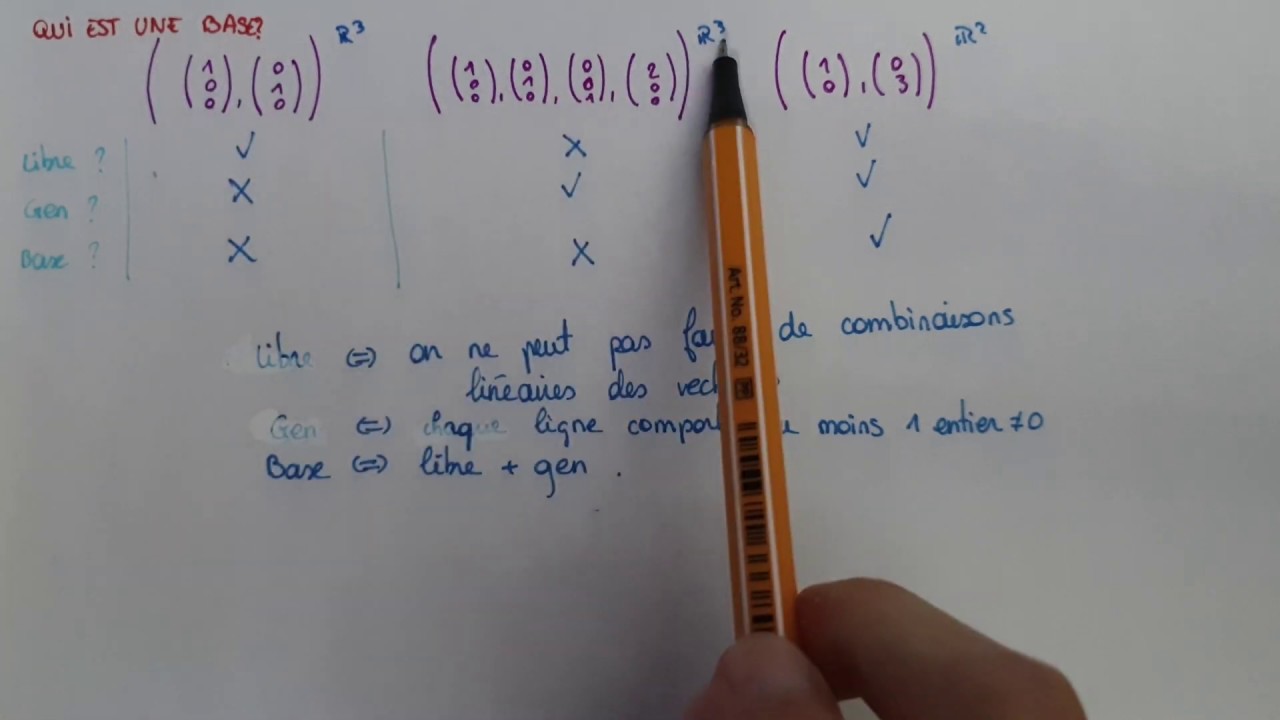 QUI EST UNE BASE?
((1 0 0), (0 1 0)) ℝ³
((1 0 0), (0 1 0), (0 0 1), (2 0 0)) ℝ³
((1 0), (0 3)) ℝ²
Libre ? ✓ ✗ ✓
Gen ? ✗ ✓ ✓
Base ? ✗ ✗ ✓
Libre <=> on ne peut pas de combinaisons
linéaires des
Gen <=> chaque ligne moins 1 entier ≠0
Base <=> libre + gen .
Art. No. 88/32